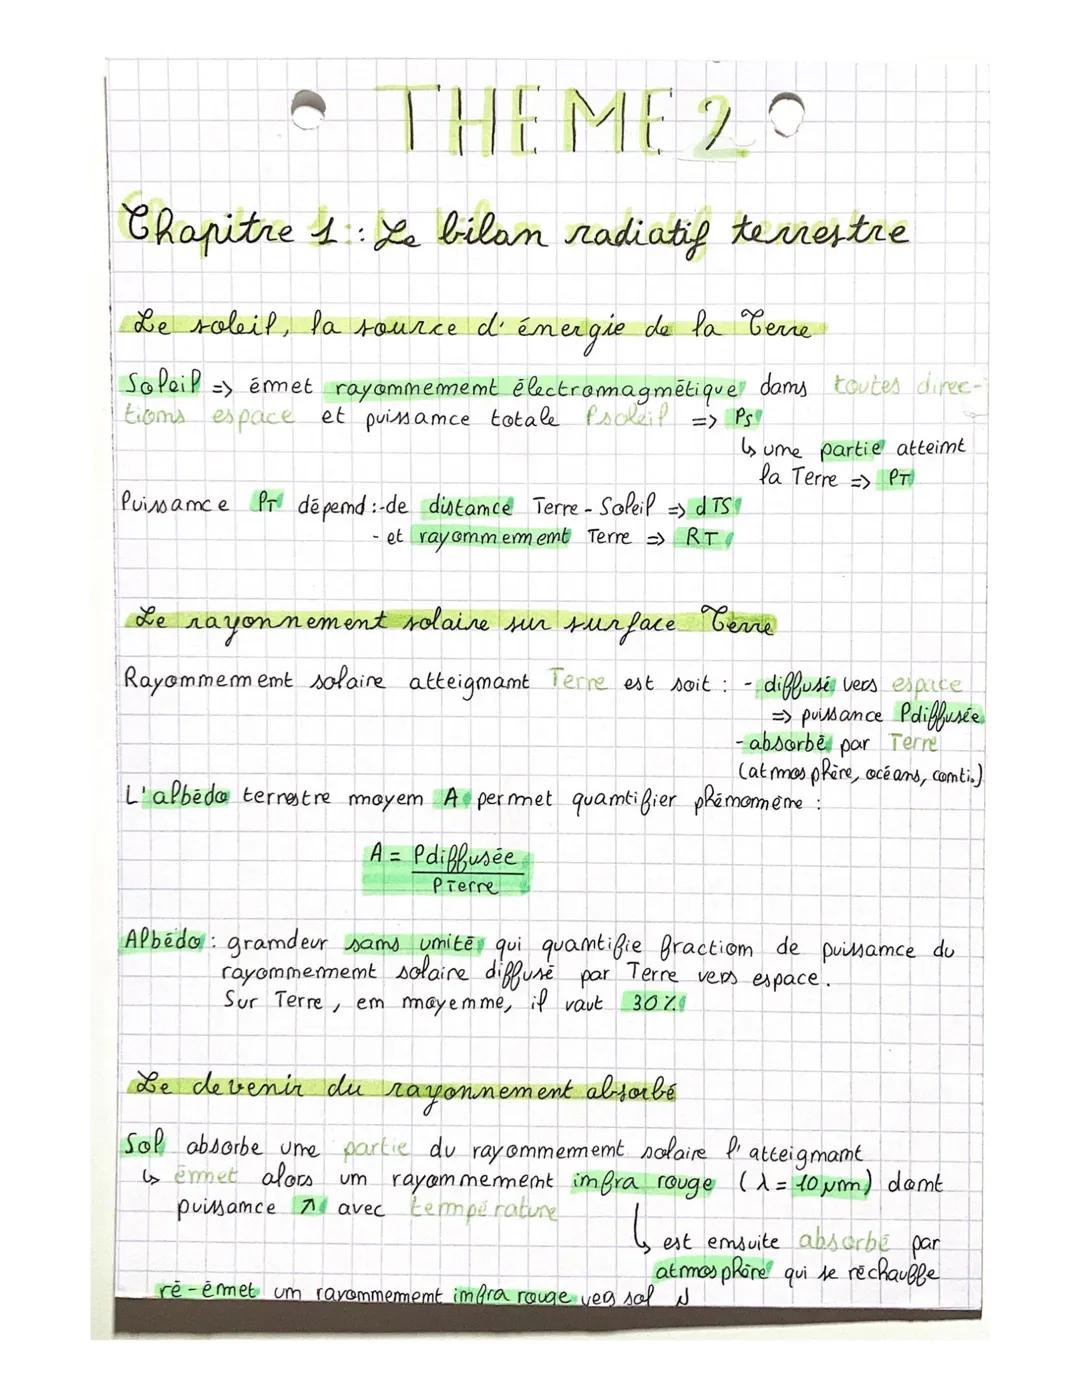 THEME 2
Chapitre 1 : Le bilan radiatif terrestre
Le soleil, la source d'énergie de la Terre
Soleil => émet rayonnement électromagnétique dans toutes direc-
tions espace et puissance totale Psoleil => PS
↳ une partie atteint
la Terre => PT
Puissance PT dépend : - de distance Terre - Soleil => dTS
- et rayonnement Terre => RT
Le rayonnement solaire sur surface Terre
Rayonnement solaire atteignant Terre est soit : - diffusé vers espace
=> puissance Pdiffusée
- absorbé par Terre
(atmosphère, océans, conti.)
L'albédo terrestre moyen A permet quantifier phénomène :
A = Pdiffusée
PTerre
Albédo : grandeur sans unité qui quantifie fraction de puissance du
rayonnement solaire diffusé par Terre vers espace.
Sur Terre, en moyenne, il vaut 30%
Le devenir du rayonnement absorbé
Sol absorbe une partie du rayonnement solaire l'atteignant
↳ émet alors un rayonnement infra rouge (λ = 10 μm) dont
puissance ↗ avec température
↳ est ensuite absorbé par
atmosphère qui se réchauffe
ré-émet un rayonnement infra rouge vers sol